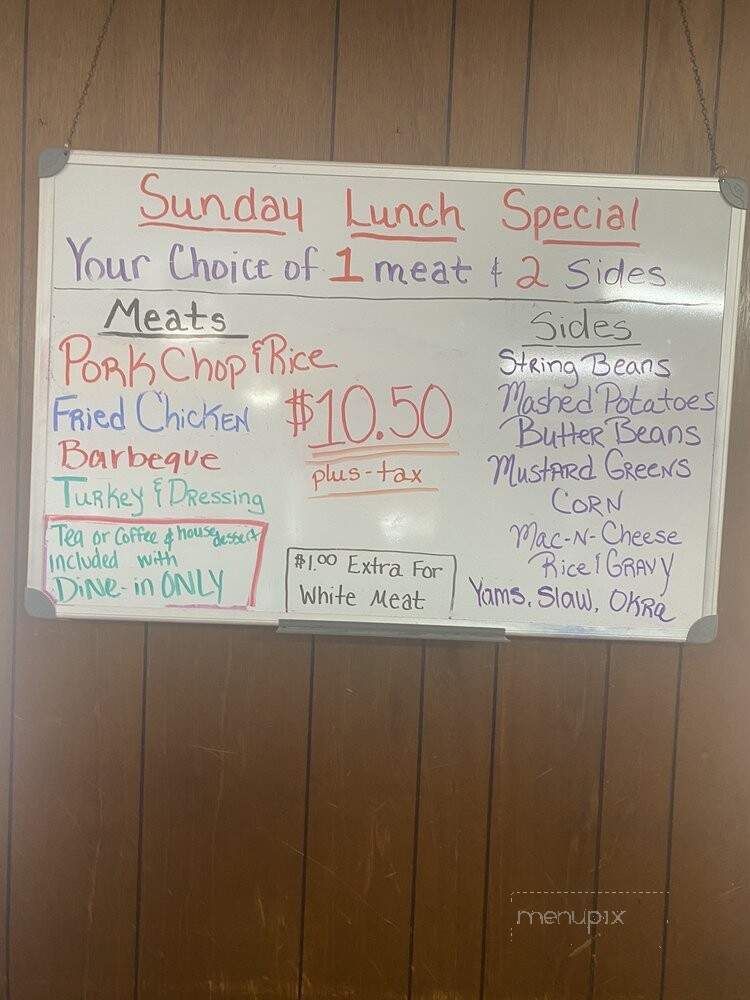 Sunday Lunch Special
Your Choice of 1 meat & 2 Sides
Meats
Pork Chop & Rice
Fried Chicken
Barbeque
Turkey & Dressing
Tea or Coffee & house dessert
included with
Dine-in ONLY
$10.50
plus-tax
$1.00 Extra For
White Meat
Sides
String Beans
Mashed Potatoes
Butter Beans
Mustard Greens
Corn
Mac-N-Cheese
Rice & Gravy
Yams, Slaw, Okra
menupix